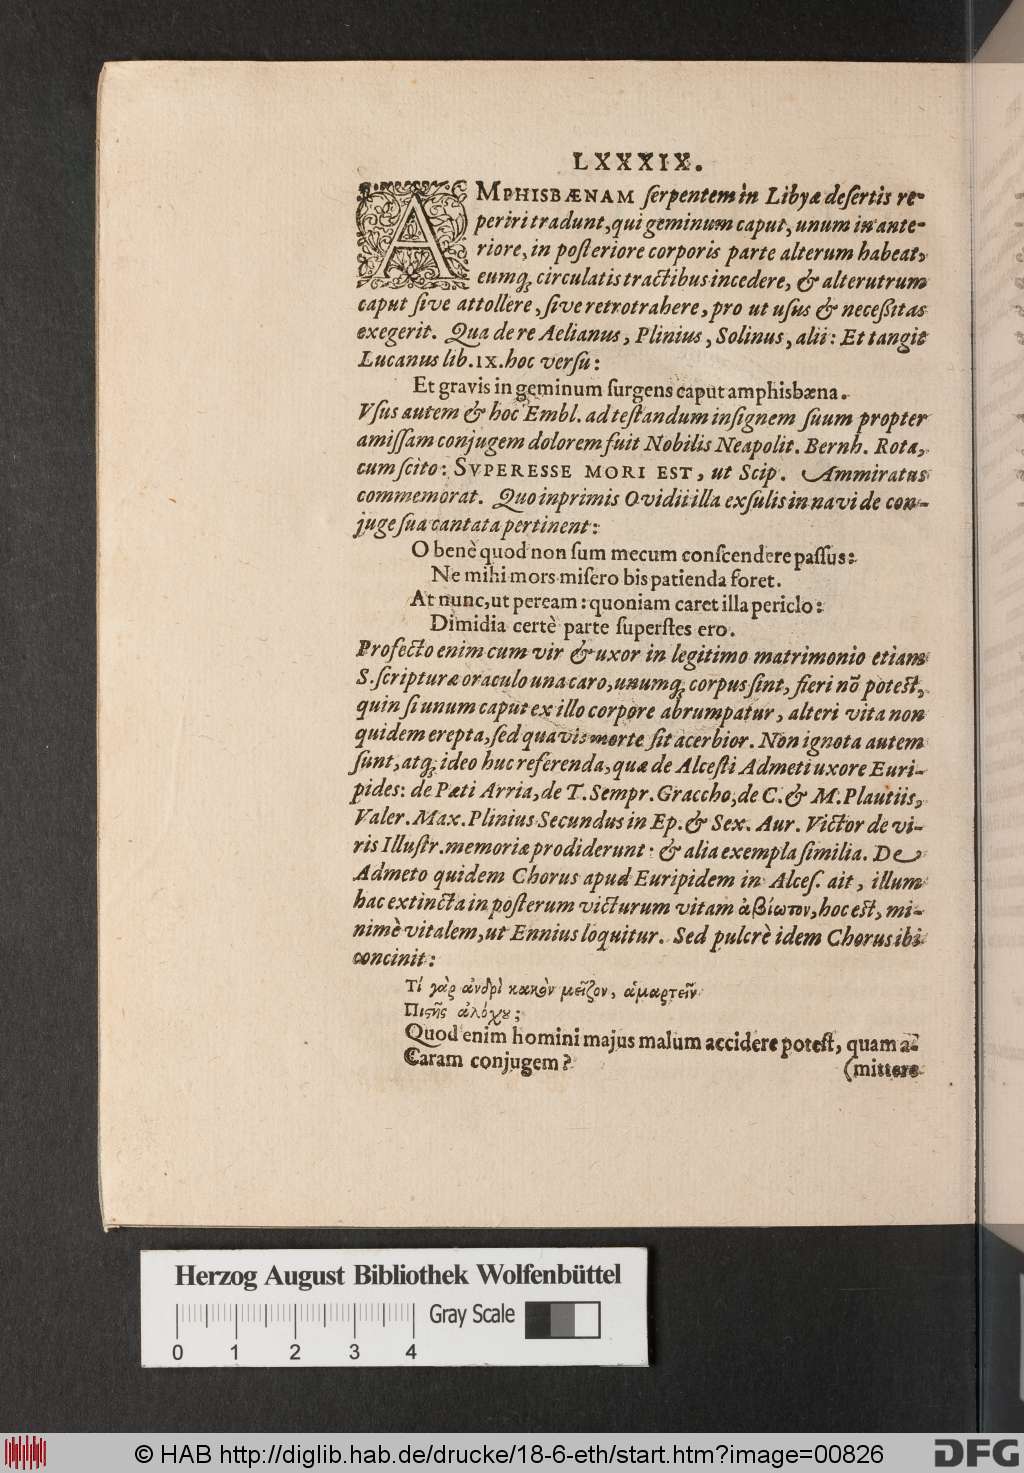 LXXXIX.
AMPHISBÆNAM ſerpentem in Libyæ deſertis re-
periri tradunt, qui geminum caput, unum in ante-
riore, in poſteriore corporis parte alterum habeat,
eumq; circulatis tractibus incedere, & alterutrum
caput ſive attollere, ſive retrotrahere, pro ut uſus & neceßitas
exegerit. Qua de re Aelianus, Plinius, Solinus, alii: Et tangit
Lucanus lib. IX. hoc verſu:
Et gravis in geminum ſurgens caput amphisbæna.
Vſus autem & hoc Embl. ad teſtandum inſignem ſuum propter
amiſſam conjugem dolorem fuit Nobilis Neapolit. Bernh. Rota,
cum ſcito: SVPERESSE MORI EST, ut Scip. Ammiratus
commemorat. Quo inprimis Ovidii illa exſulis in navi de con-
juge ſua cantata pertinent:
O benè quod non ſum mecum conſcendere paſſus:
Ne mihi mors miſero bis patienda foret.
At nunc, ut peream: quoniam caret illa periclo:
Dimidia certè parte ſuperſtes ero.
Profectò enim cum vir & uxor in legitimo matrimonio etiam
S. ſcripturæ oraculo una caro, unumq; corpus ſint, fieri nō poteſt,
quin ſi unum caput ex illo corpore abrumpatur, alteri vita non
quidem erepta, ſed quavis morte ſit acerbior. Non ignota autem
ſunt, atq; ideo huc referenda, quæ de Alceſti Admeti uxore Euri-
pides: de Pæti Arria, de T. Sempr. Graccho, de C. & M. Plautiis,
Valer. Max. Plinius Secundus in Ep. & Sex. Aur. Victor de vi-
ris Illuſtr. memoriæ prodiderunt: & alia exempla ſimilia. De
Admeto quidem Chorus apud Euripidem in Alceſ. ait, illum
hac extincta in poſterum victurum vitam ἀβίωτον, hoc eſt, mi-
nimè vitalem, ut Ennius loquitur. Sed pulcrè idem Chorus ibi
concinit:
Τί γὰρ ἀνδρὶ κακὸν μεῖζον, ἁμαρτεῖν
Πιϛῆς ἀλόχȣ;
Quod enim homini majus malum accidere poteſt, quam a-
Caram conjugem? (mittere
Herzog August Bibliothek Wolfenbüttel
Gray Scale
0 1 2 3 4
© HAB http://diglib.hab.de/drucke/18-6-eth/start.htm?image=00826
DFG